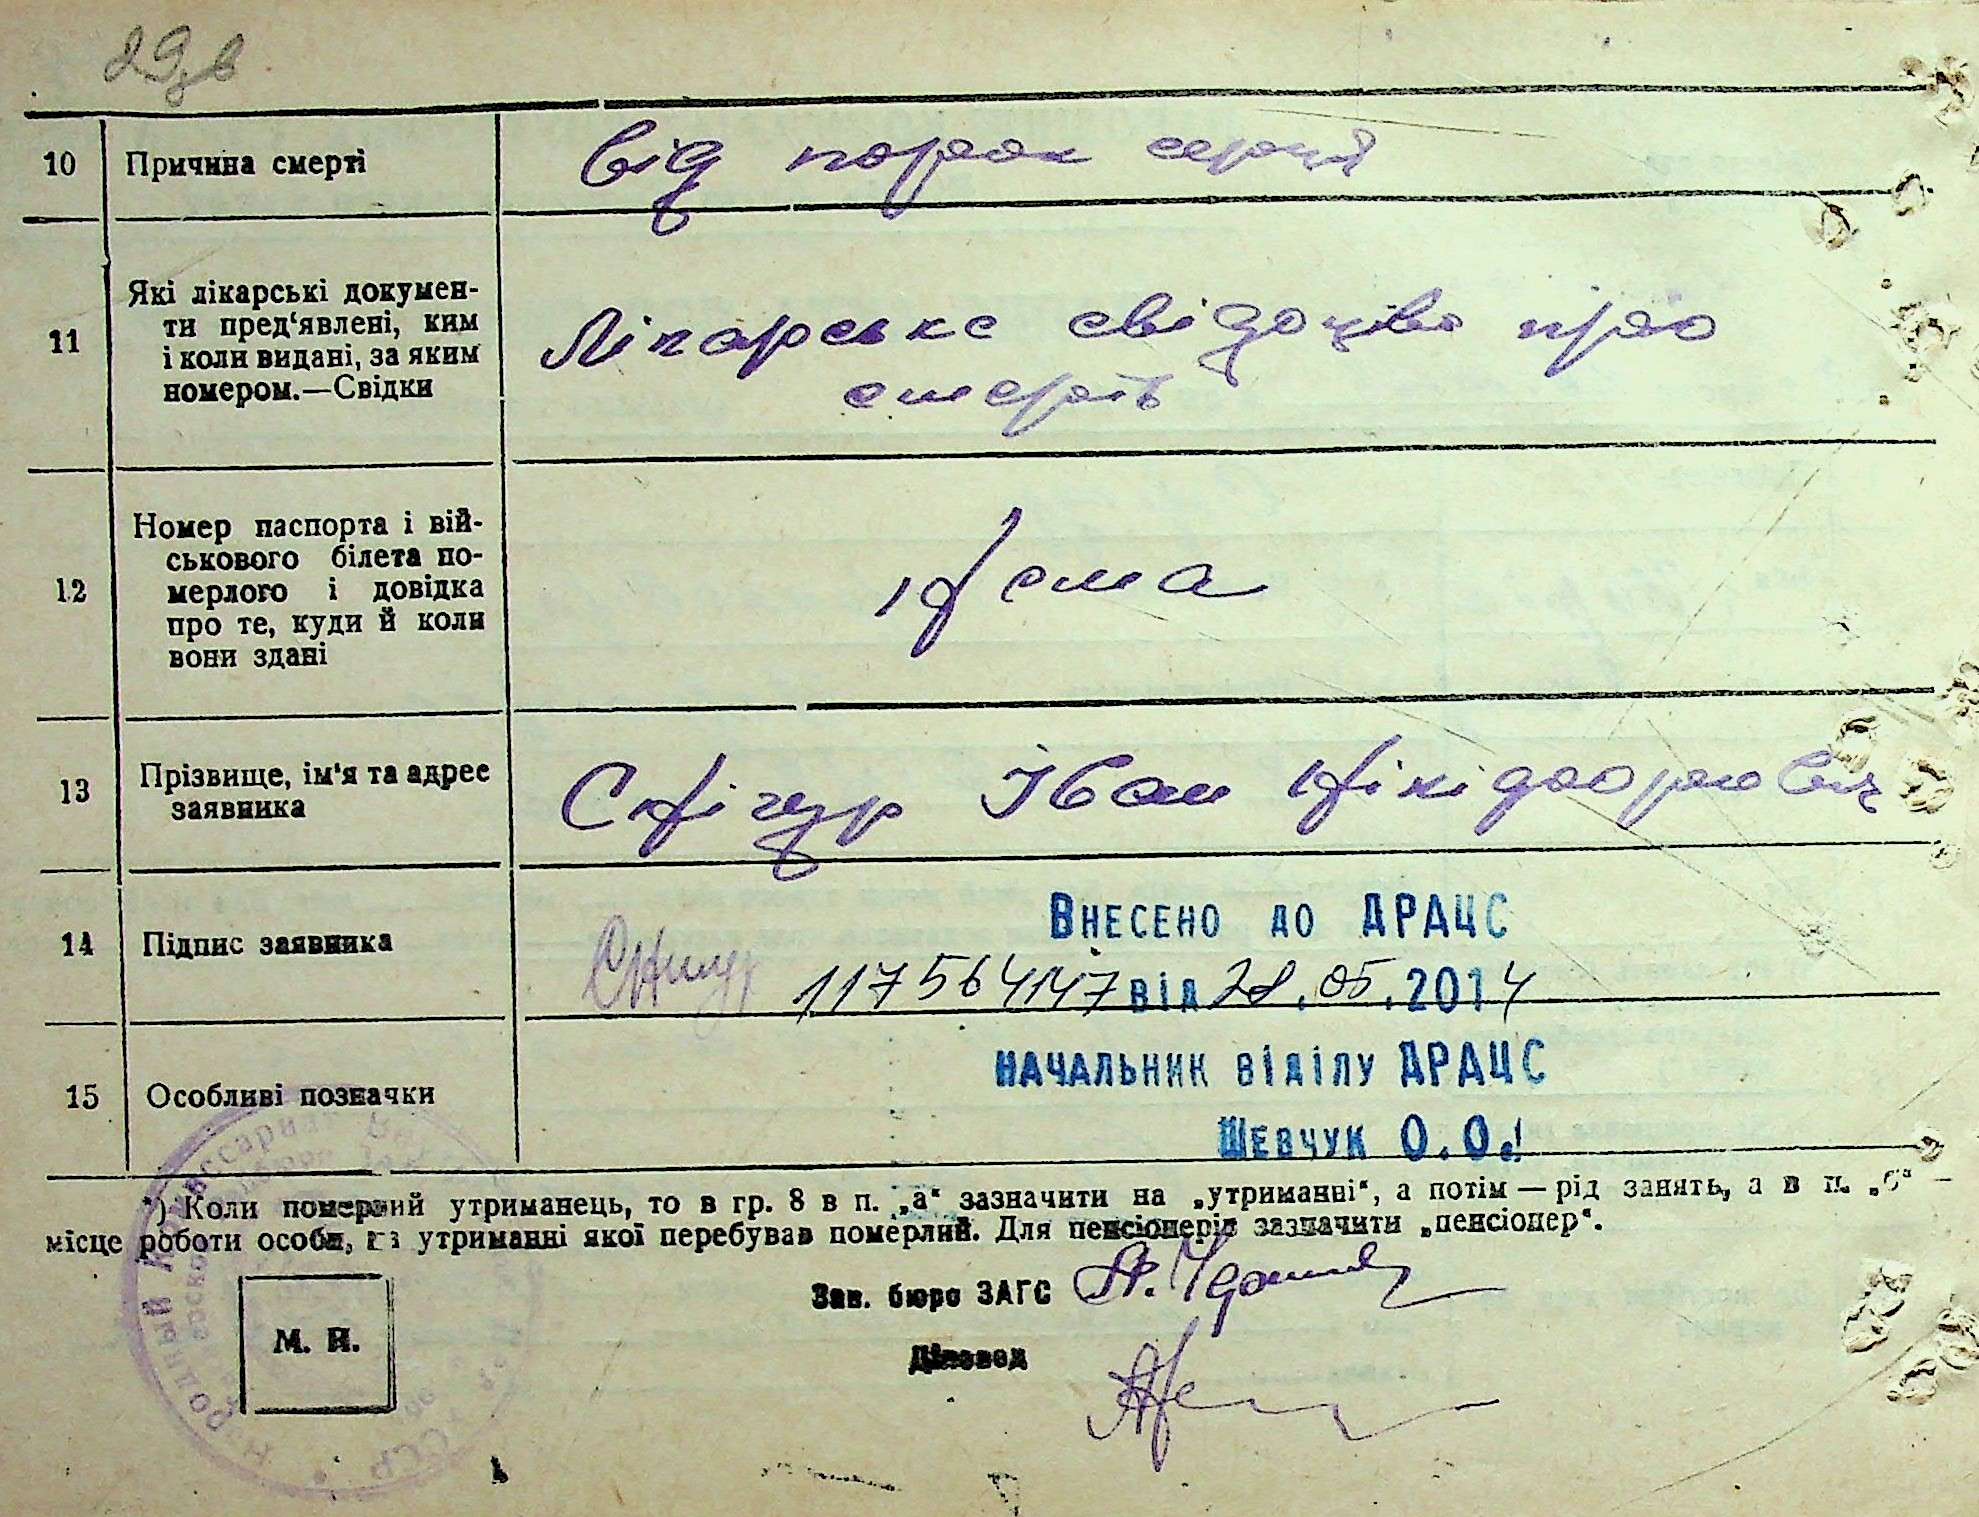 29зв
10 Причина смерті Від порок серця
11 Які лікарські докумен-
ти пред'явлені, ким
і коли видані, за яким
номером.—Свідки
Лікарське свідоцтво про
смерть
12 Номер паспорта і вій-
ськового білета по-
мерлого і довідка
про те, куди й коли
вони здані
Нема
13 Прізвище, ім'я та адрес
заявника
Снігур Іван Нікідфорович
14 Підпис заявника Снигур
Внесено до ДРАЦС
117564147 від 28.05.2014
15 Особливі позначки
начальник віділу ДРАЦС
Шевчук О.О.
*) Коли померший утриманець, то в гр. 8 в п. „а“ зазначити на „утриманні“, а потім — рід занять, а в п. „б“ —
місце роботи особи, на утриманні якої перебував померлий. Для пенсіонерів зазначити „пенсіонер“.
Зав. бюро ЗАГС
М. П.
Діловод
Народный Комиссариат Вн
ССР